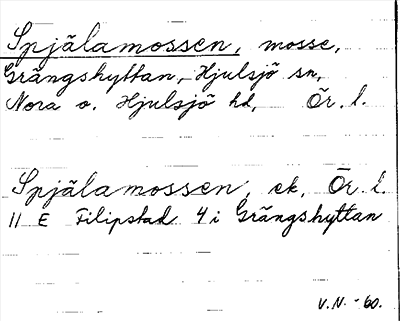 Spjälamossen, mosse,
Grängshyttan, Hjulsjö sn,
Nora o. Hjulsjö hd, Ör. l.
Spjälamossen, ek, Ör. l.
11 E Filipstad 4 i Grängshyttan
V.N. -60.